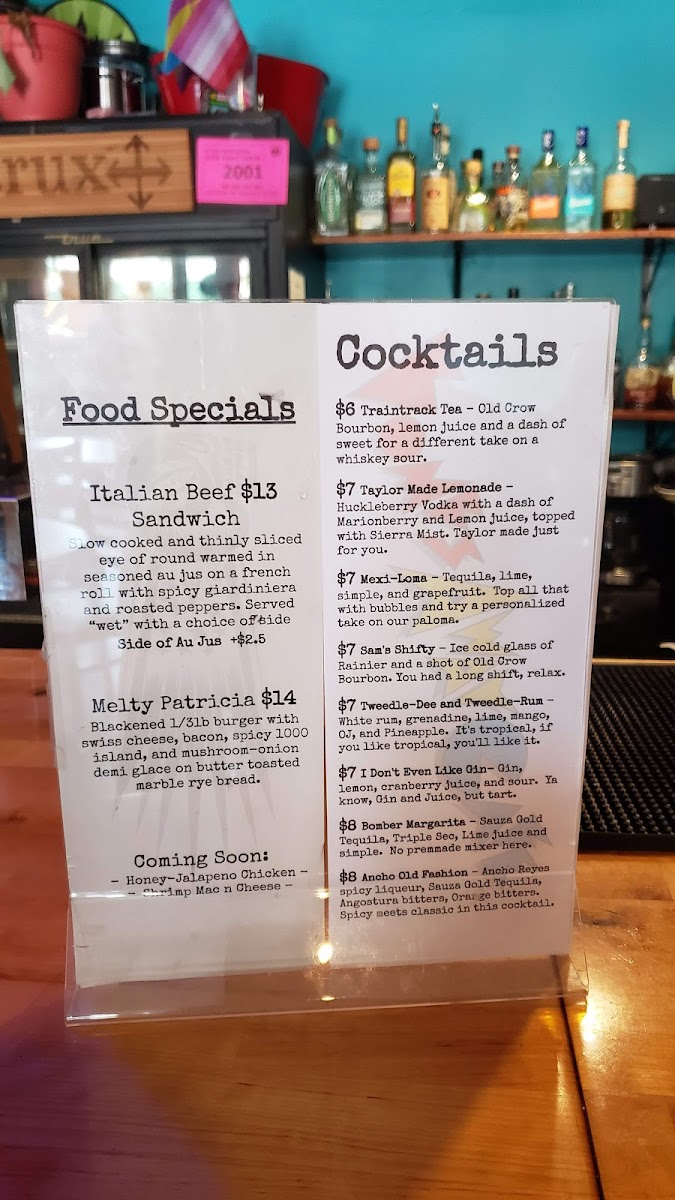 rux
2001
true
Food Specials
Italian Beef $13
Sandwich
Slow cooked and thinly sliced
eye of round warmed in
seasoned au jus on a french
roll with spicy giardiniera
and roasted peppers. Served
"wet" with a choice of side
Side of Au Jus +$2.5
Melty Patricia $14
Blackened 1/3lb burger with
swiss cheese, bacon, spicy 1000
island, and mushroom-onion
demi glace on butter toasted
marble rye bread.
Coming Soon:
- Honey-Jalapeno Chicken -
- Shrimp Mac n Cheese -
Cocktails
$6 Traintrack Tea - Old Crow
Bourbon, lemon juice and a dash of
sweet for a different take on a
whiskey sour.
$7 Taylor Made Lemonade -
Huckleberry Vodka with a dash of
Marionberry and Lemon juice, topped
with Sierra Mist. Taylor made just
for you.
$7 Mexi-Loma - Tequila, lime,
simple, and grapefruit. Top all that
with bubbles and try a personalized
take on our paloma.
$7 Sam's Shifty - Ice cold glass of
Rainier and a shot of Old Crow
Bourbon. You had a long shift, relax.
$7 Tweedle-Dee and Tweedle-Rum -
White rum, grenadine, lime, mango,
OJ, and Pineapple. It's tropical, if
you like tropical, you'll like it.
$7 I Don't Even Like Gin- Gin,
lemon, cranberry juice, and sour. Ya
know, Gin and Juice, but tart.
$8 Bomber Margarita - Sauza Gold
Tequila, Triple Sec, Lime juice and
simple. No premmade mixer here.
$8 Ancho Old Fashion - Ancho Reyes
spicy liqueur, Sauza Gold Tequila,
Angostura bitters, Orange bitters.
Spicy meets classic in this cocktail.